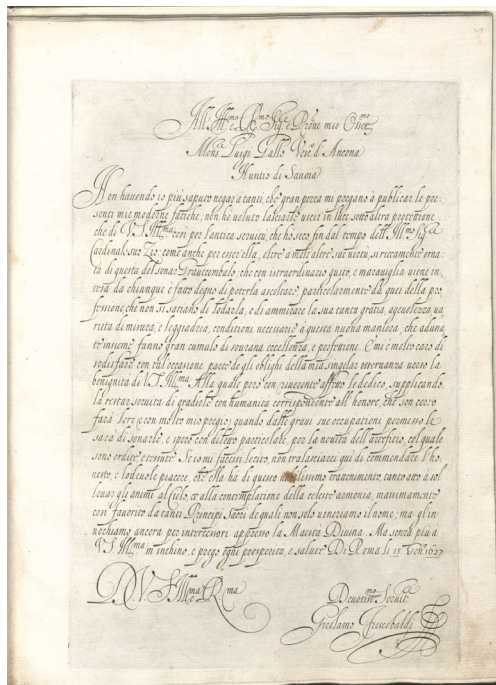 All' Ill.mo e R.mo Sig.re e P̃rone mio Oss.mo
Mons.re Luigi Gallo Vesc.o d'Ancona
Nuntio di Sauoia
Non hauendo io più saputo negar à tanti, che gran pezza mi pregano à publicar le pre-
senti mie moderne fatiche, non hò voluto lasciarle vscir in luce sotto altra protettione,
che di V.S. Ill.ma così per l'antica seruitù, che hò seco fin dal tempo dell' Ill.mo Sig.re
Cardinale suo Zio, come anche per esser ella, oltre à molt'altre sue virtù, sì riccamente orna-
ta di questa del sonar Grauecembalo, che con istraordinario gusto, e marauiglia viene in-
tesa da chiunque è fatto degno di poterla ascoltare, particolarmente da quei della pro-
fessione, che non si satiano di lodarla, e di ammirare la sua tanta gratia, ageuolezza, va
rietà di misura, e leggiadria, conditioni necessarie à questa nuoua maniera, che aduna-
te insieme fanno gran cumulo di sourana eccellenza, e perfetione. E mi è molto caro di
sodisfare con tal occasione parte de gli oblighi della mia singolar osseruanza verso la
benignità di V.S. Ill.ma Alla quale però con riuerente affetto le dedico, supplicando
la restar seruita di gradirle con humanità corrispondente all' honore, che son certo
farà loro, e con molto mio pregio, quando dalle graui sue occupationi permesso le
sarà di sonarle, e spero con diletto particolare, per la nouità dell'artificio, col quale
sono ordite, e tessute. Se io mi facessi lecito, non tralasciarei qui di commendare l'ho
nesto, e lodeuole piacere, che ella hà di questo nobilissimo trattenimento, tanto atto a sol
leuar gli animi al Cielo, et alla contemplatione della celeste armonia, massimamente
così fauorito da tanti Principi Sacri de quali non solo veneriamo il nome, ma gl'in
uochiamo ancora per intercessori appresso la Maestà Diuina. Ma senza più a
V.S. Ill.ma m'inchino, e prego ogni prosperità, e salute. Di Roma li 15. Gen. 1627
D. V. S. Ill.ma e R.ma
Deuotiss.mo Seruit.re
Girolamo Frescobaldi